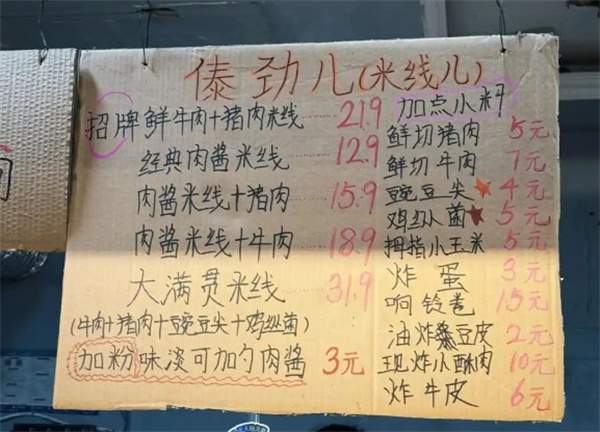 傣劲儿(米线儿)
招牌鲜牛肉+猪肉米线……21.9
经典肉酱米线……12.9
肉酱米线+猪肉……15.9
肉酱米线+牛肉……18.9
大满贯米线……31.9
(牛肉+猪肉+豌豆尖+鸡纵菌)
加粉 味淡可加勺肉酱 3元
加点小料
鲜切猪肉 5元
鲜切牛肉 7元
豌豆尖★4元
鸡纵菌★5元
拇指小玉米 5元
炸蛋 3元
响铃卷 15元
油炸豆皮 2元
现炸小酥肉 10元
炸牛皮 6元